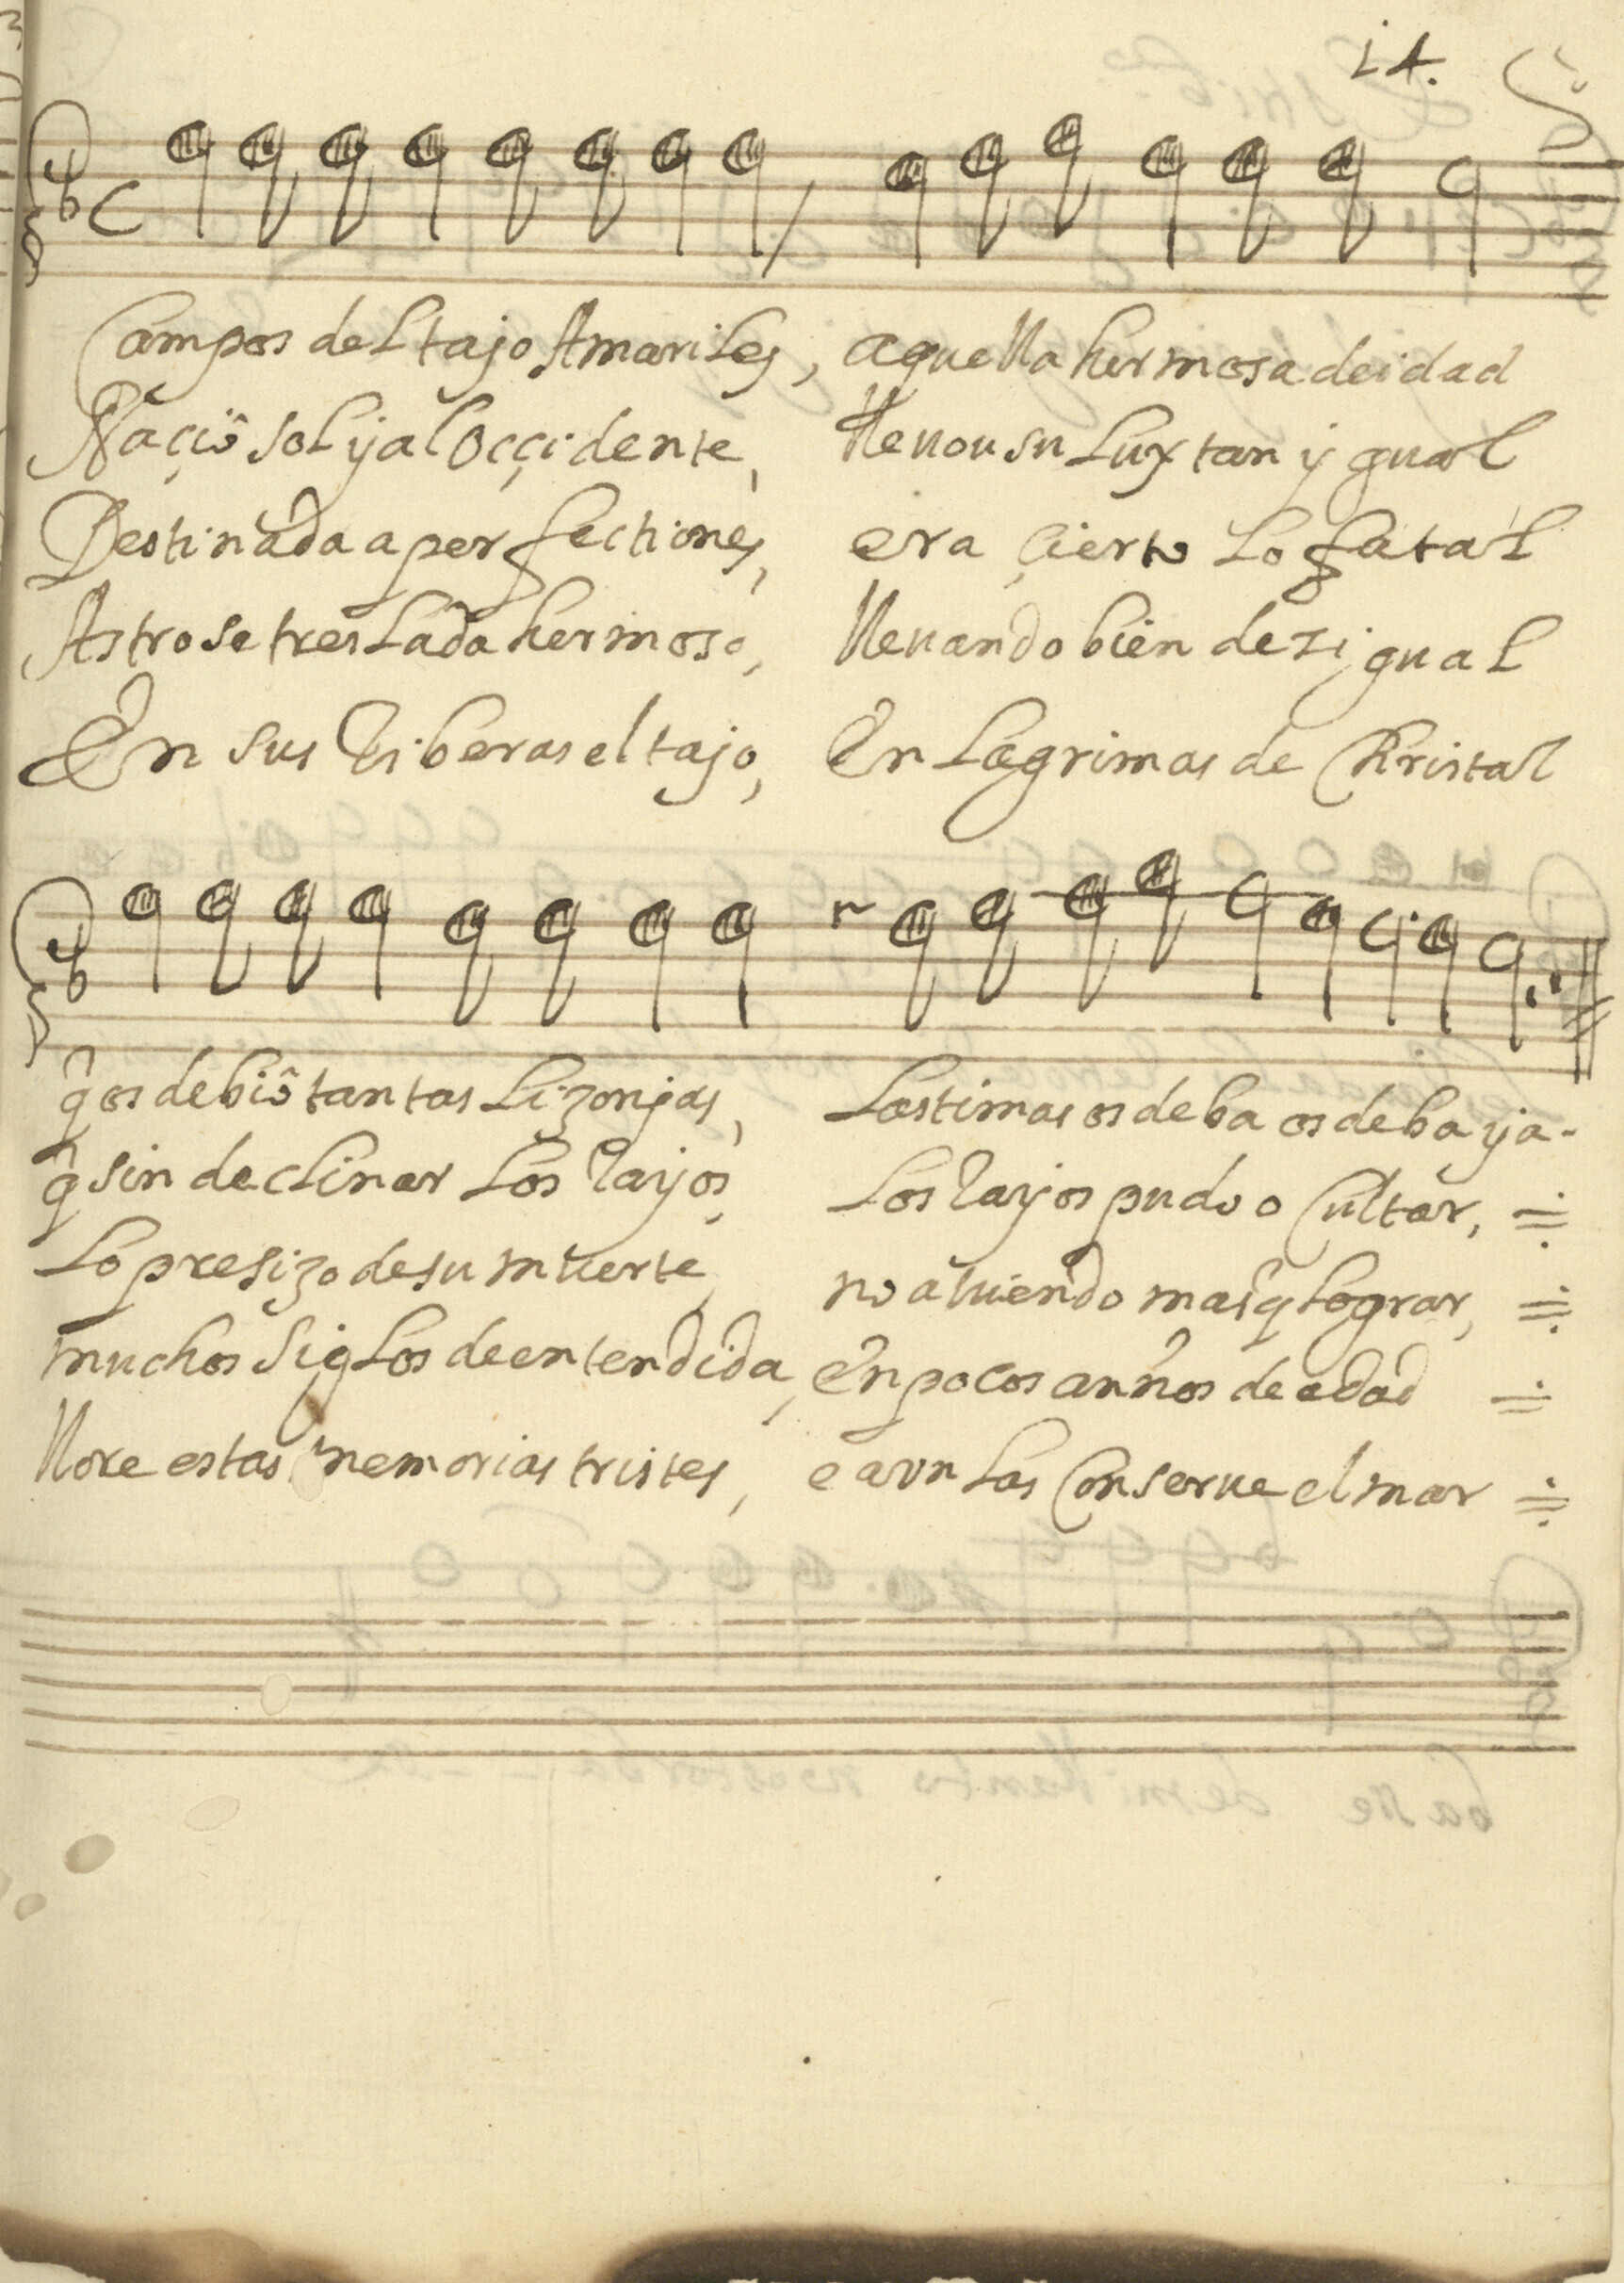 14.
Campos del tajo Amariles, aquella hermosa deidad
Naçiô sol y al Occidente, lleuou su lux tan ygual
Destinada a perfectiones, era çierto lo fatal
Astro se treslada hermoso, lleuando bien dezigual
En sus Riberas el tajo, En lagrimas de Kristal
q̂ os debiô tantas lizonjas, lastimas os deba os deba ya-
q̂ sin declinar los rayos, los rayos pudo o Cultar,
lo presizo de su muerte, no auiendo mas q̂ lograr,
muchos siglos de entendida, En pocos annos de edad
llore estas memorias tristes, e aun las Conserue el mar